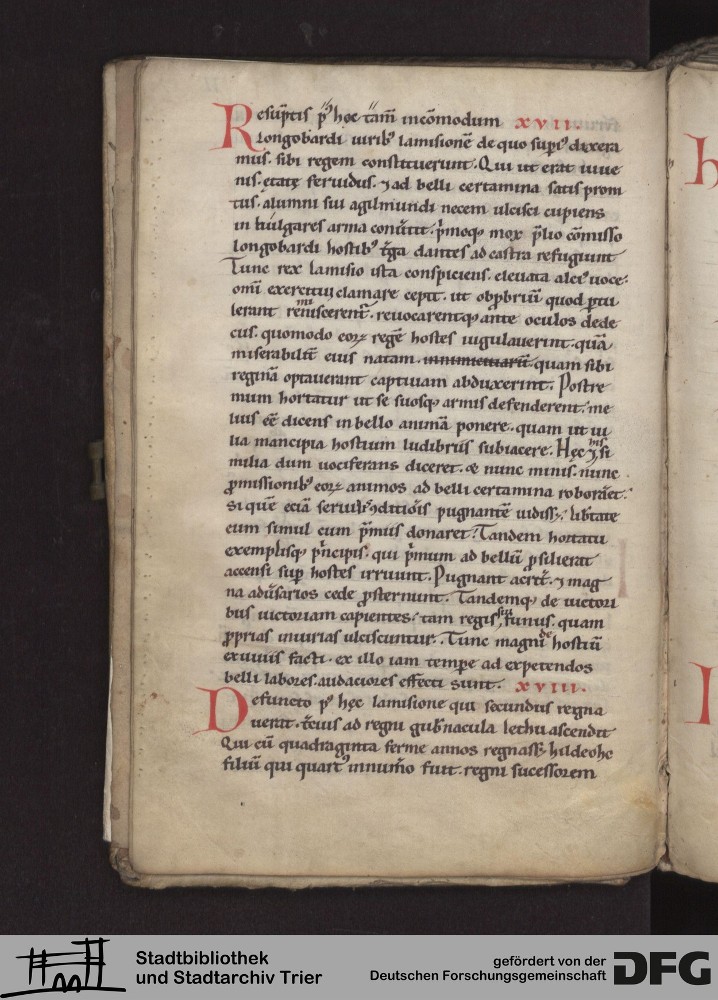 Resūptis p̄ hęc tam̄ incōmodum XVII.
Longobardi uirib; lamisionē de quo supi᷒ dixera
mus. sibi regem constituerunt. Qui ut erat iuue
nis. etate feruidus. ⁊ ad belli certamina satis prom
tus. alumni sui agilmundi necem ulcisci cupiens
in bulgares arma conūtit. p̄moq; mox p̄lio cōmisso
longobardi hostib; t̄ga dantes ad castra refugiunt
Tunc rex lamisio ista conspiciens. eleuata alci᷒ uoce.
omi exercitui clamare cepit. ut obprbriū quod ptu
lerant reminiscerent᷒. reuocarentq; ante oculos dede
cus. quomodo eoꝝ regē hostes iugulauerint. quā
miserabilit̄ eius natam. quam sibi
reginā optauerant captiuam abduxerint. Postre
mum hortatur ut se suosq; armis defenderent. me
lius eē dicens in bello animā ponere. quam ut ui
lia mancipia hostium ludibriis subiacere. Hęc ⁊ his si
milia dum uociferans diceret. & nunc minis. nunc
ꝓmissionib; eoꝝ animos ad belli certamina roboraret.
si quē eciā seruilis ↄditiōis pugnantē uidiss;. lib̄tate
eum simul cum p̄miis donaret. Tandem hortatu
exemplisq; p̄ncipis. qui p̄mum ad bellū ꝓsilierat
accensi sup hostes irruunt. Pugnant acrit̄. ⁊ mag
na adūsarios cede ꝓsternunt. Tandemq; de uictori
bus uictoriam capientes. tam regis sui funus. quam
ꝓprias iniurias ulciscuntur. Tunc magni de hostiū
exuuiis facti. ex illo iam tempe ad expetendos
belli labores. audaciores effecti sunt. XVIII.
Defuncto p᷒ hęc lamisione qui secundus regna
uerat. t̄cius ad regni gub̄nacula lethu ascendit
Qui cū quadraginta ferme annos regnass; hildeohc
filiū qui quart᷒ innumō fuit. regni sucessorem
Stadtbibliothek
und Stadtarchiv Trier
gefördert von der
Deutschen Forschungsgemeinschaft
DFG